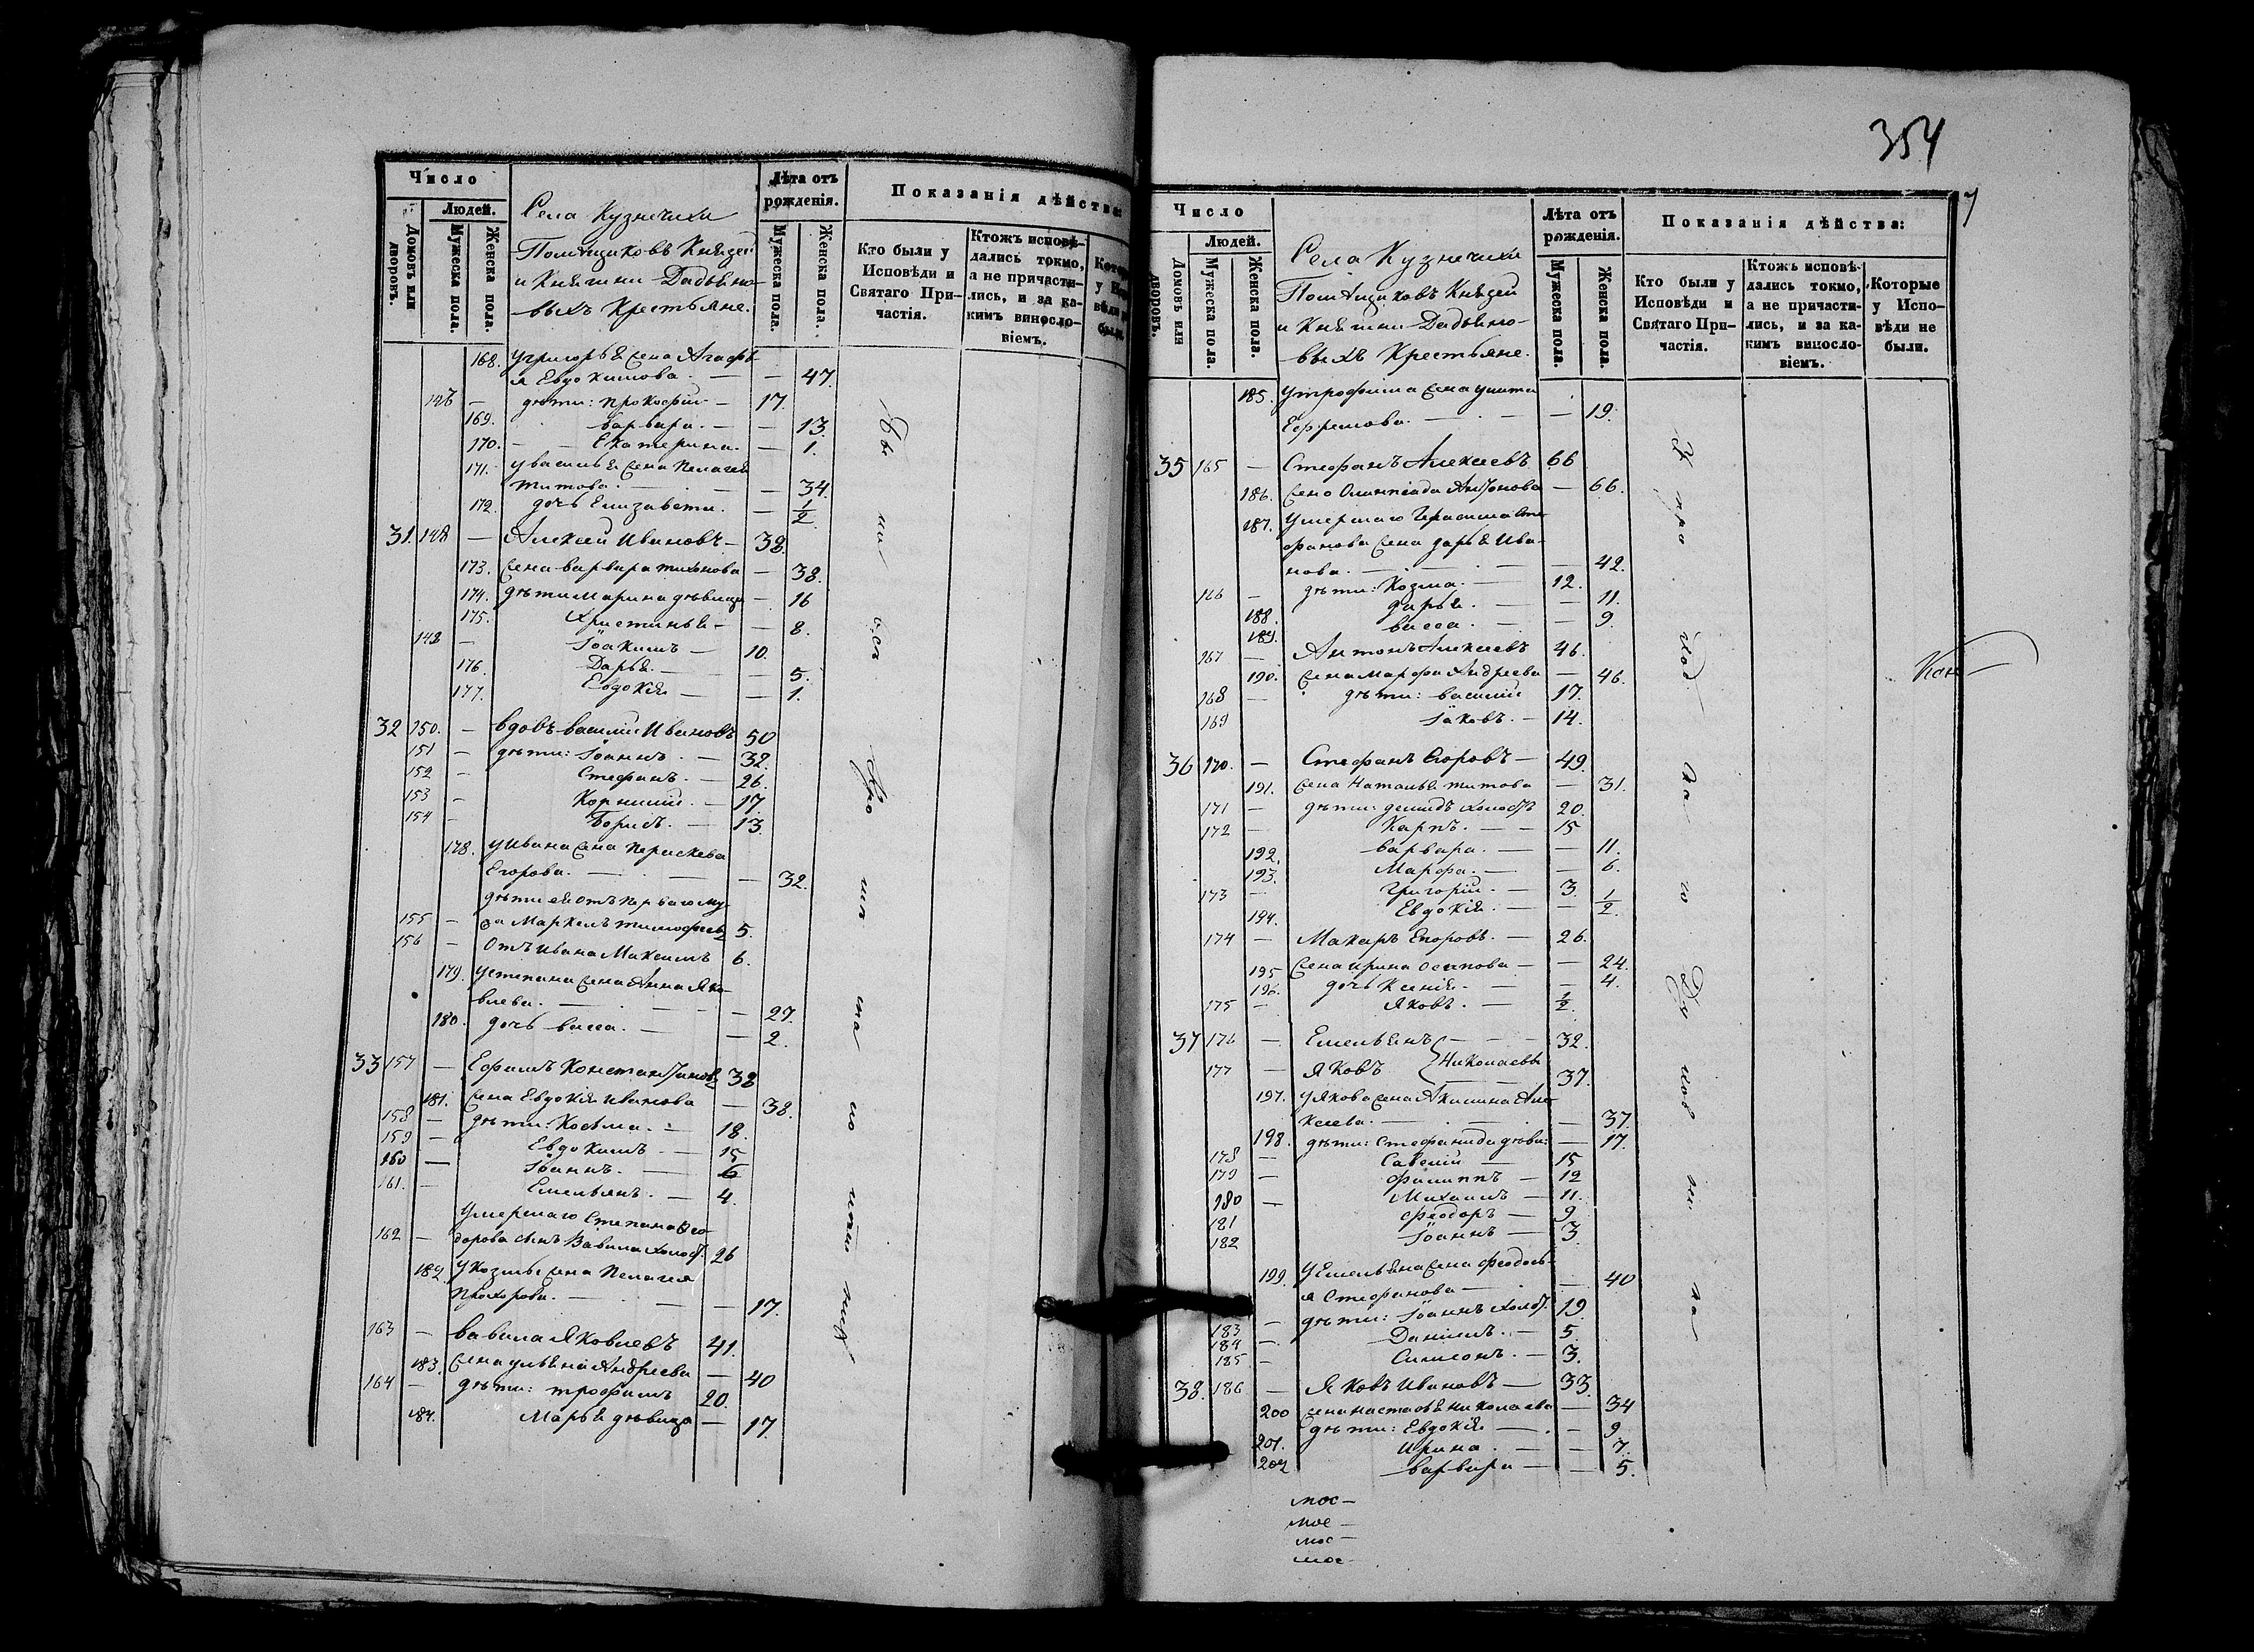 354
7
Число
Людей.
Домовъ или дворовъ.
Мужеска пола.
Женска пола.
Села Кузнечихи
Помѣщиковъ Князей
и Княжны Дадьяно-
выхъ Крестьяне.
Лѣта отъ рожденія.
Мужеска пола.
Женска пола.
Показанія дѣйства:
Кто были у Исповѣди и Святаго При-частія.
Ктожъ исповѣ-дались токмо, а не причасти-лись, и за ка-кимъ винослo-віемъ.
168. У Григорья жена Агафь-
я Евдокимова. — — 47.
— дѣти: Прокофій — 17.
169. Варвара. — — 13.
170. — Екатерина. — 1.
171. У Василья жена Пелагея
Титова. — — 34.
172. дочь Елизавета. — 1/2.
31. 148 — Алексѣй Ивановъ — 38.
173. жена Варвара Тихонова — 38.
174. дѣти Марина дѣвица — 16
175. Христинья — — 8.
— Іоакимъ — 10.
176. Дарья. — — 5.
177. Евдокія — — 1.
32 150. — вдовъ Василій Ивановъ 50
151 — дѣти: Іоаннъ. — 32.
152 — Стефанъ. — 26.
153 — Корнилій. — 17
154 — Борисъ. — 13.
178. У Ивана жена Параскева
Егорова. — — — 32.
дѣти ея отъ перваго му-
155 — жа Маркелъ Тимофеевъ 5.
156 — отъ Ивана Максимъ 6.
179. У Степана жена Анна Яко-
влева. — — — 27.
180. дочь Васса. — — 2.
33 157 — Ефимъ Константиновъ 38
181. жена Евдокія Иванова — 38.
158 — дѣти: Косьма. — 18.
159 — Евдокимъ — 15
160 — Іоаннъ. — 6
161. — Емельянъ. — 4.
Умершаго Степана Ѳео-
162 — дорова сынъ Вавила холост. 26
182. У Козмы жена Пелагея
Прохорова. — — — 17.
163 — Вавила Яковлевъ 41.
183. жена Ульяна Андреева — 40
164 — дѣти: Трофимъ 20.
184. Марья дѣвица — 17.
Число
Людей.
Домовъ или дворовъ.
Мужеска пола.
Женска пола.
Села Кузнечихи
Помѣщиковъ Князей
и Княжны Дадьяно-
выхъ Крестьяне.
Лѣта отъ рожденія.
Мужеска пола.
Женска пола.
Показанія дѣйства:
Кто были у Исповѣди и Святаго При-частія.
Ктожъ исповѣ-дались токмо, а не причасти-лись, и за ка-кимъ винослo-віемъ.
Которые у Испо-вѣди не были.
185. У Трофима жена
Ефремова. — — 19.
35 165 — Стефанъ Алексеевъ 66
186. жена Олимпіада Антонова — 66.
187. Умершаго Герасима Сте-
фанова жена Дарья Ива-
нова. — — — 42.
166 — дѣти: Козма. — 12.
188. Дарья. — — 11.
189. Васса. — — 9.
167 — Антонъ Алексеевъ 46.
190. жена Марфа Андреева — 46.
168 — дѣти: Василій 17.
169 Іаковъ. — 14.
36 170. — Стефанъ Егоровъ — 49.
191. жена Наталья Титова — 31.
171 — дѣти: Демидъ холостъ 20.
172 — Карпъ. — — 15
192. Варвара. — — 11.
193. Марфа. — — 6.
173 — Григорій. — 3.
194. Евдокія. — — 1/2.
174 — Макаръ Егоровъ. — 26.
195 жена Ирина Осипова — — 24.
196. дочь Ксенія. — — 4.
175 — Яковъ. — 1/2.
37 176 — Емельянъ — — 32.
177 — Яковъ } Николаевы 37.
197. У Якова жена Акилина Але-
ксеева. — — — 37.
198. дѣти: Стефанида дѣви: — 17.
178 — Савелій — 15
179 — Филиппъ — 12
180 — Михаилъ — 11.
181 Феодоръ — 9
182 Іоаннъ — 3.
199. У Емельяна жена Феодось-
я Стефанова — — 40
183 — дѣти: Іоаннъ холост. 19.
184 — Даніилъ. — 5.
185 — Симеонъ. — 3.
38. 186 — Яковъ Ивановъ — 33.
200 жена Настасья Николаева — 34
дѣти: Евдокія — — 9
201. Ирина. — — 7.
202 Варвара — — 5.